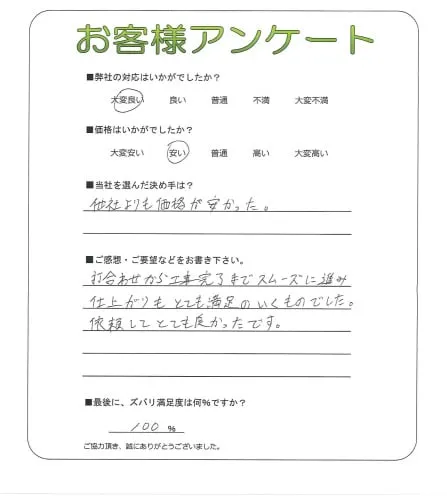 お客様アンケート
■弊社の対応はいかがでしたか？
大変良い 良い 普通 不満 大変不満
■価格はいかがでしたか？
大変安い 安い 普通 高い 大変高い
■当社を選んだ決め手は？
他社よりも価格が安かった。
■ご感想・ご要望などをお書き下さい。
打合わせから工事完了までスムーズに進み
仕上がりもとても満足のいくものでした。
依頼してとても良かったです。
■最後に、ズバリ満足度は何％ですか？
100 ％
ご協力頂き、誠にありがとうございました。